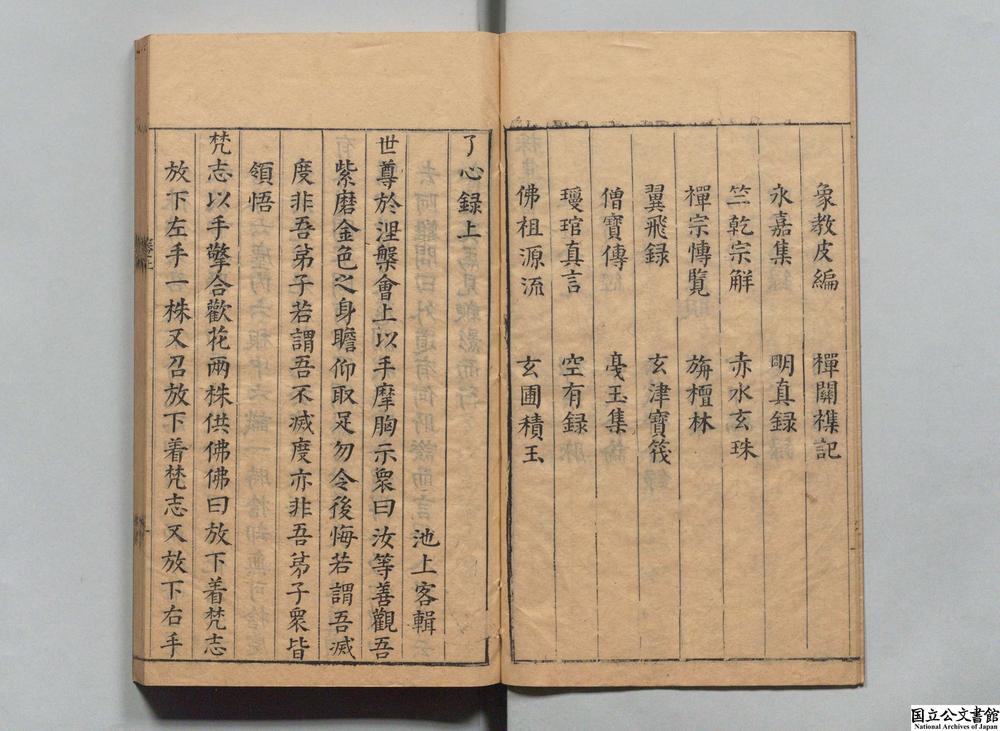 象教皮編 禪關襍記
永嘉集 明真録
竺乾宗解 赤水玄珠
禪宗愽覧 旃檀林
翼飛録 玄津寶筏
僧寶傳 戞玉集
璦琯真言 空有録
佛祖源流 玄圃積玉
了心録上
池上客輯
世尊於涅槃會上以手摩胸示衆曰汝等善觀吾
紫磨金色之身瞻仰取足勿令後悔若謂吾滅
度非吾弟子若謂吾不滅度亦非吾弟子衆皆
領悟
梵志以手擎合歡花兩株供佛佛曰放下着梵志
放下左手一株又召放下着梵志又放下右手
国立公文書館
National Archives of Japan